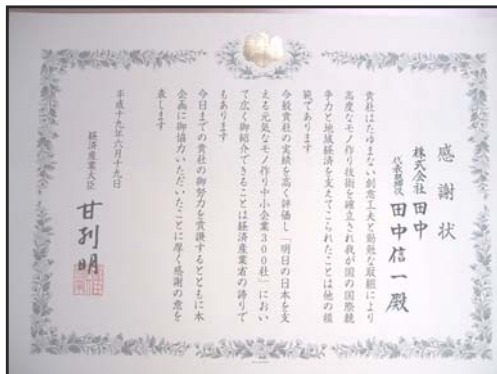 感謝状
株式会社 田中
代表取締役 田中信一殿
貴社はたゆまない創意工夫と勤勉な取組により
高度なモノ作り技術を確立され我が国の国際競
争力と地域経済を支えてこられたことは他の模
範であります
今般貴社の実績を高く評価し「明日の日本を支
える元気なモノ作り中小企業300社」におい
て広く御紹介できることは経済産業省の誇りで
もあります
今日までの貴社の御努力を賞讃するとともに本
企画に御協力いただいたことに厚く感謝の意を
表します
平成十九年六月十九日
経済産業大臣 甘利明